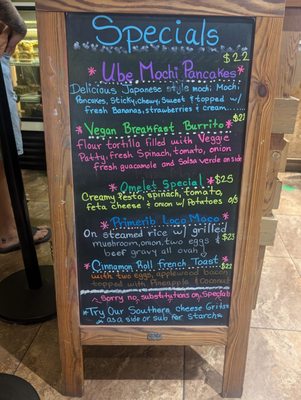 Specials
$22
*Ube Mochi Pancakes*
Delicious Japanese style mochi. Mochi
Pancakes, Sticky, chewy, sweet & topped w/
fresh Bananas, strawberries & cream......
*Vegan Breakfast Burrito* $21
flour tortilla filled with Veggie
Patty, fresh Spinach, tomato, onion
fresh guacamole and Salsa verde on side
*Omelet Special* $25
Creamy Pesto, spinach, tomato,
feta cheese & onion w/ Potatoes
*Primerib Loco Moco*
On steamed rice w/ grilled
mushroom, onion, two eggs & $23
beef gravy all ovah
*Cinnamon Roll french Toast*
with two eggs, applewood bacon $23
topped with Pineapple & Coconut
Sorry no, substitutions on, Specials
*Try Our Southern cheese Grits*
as a side or sub for starch*